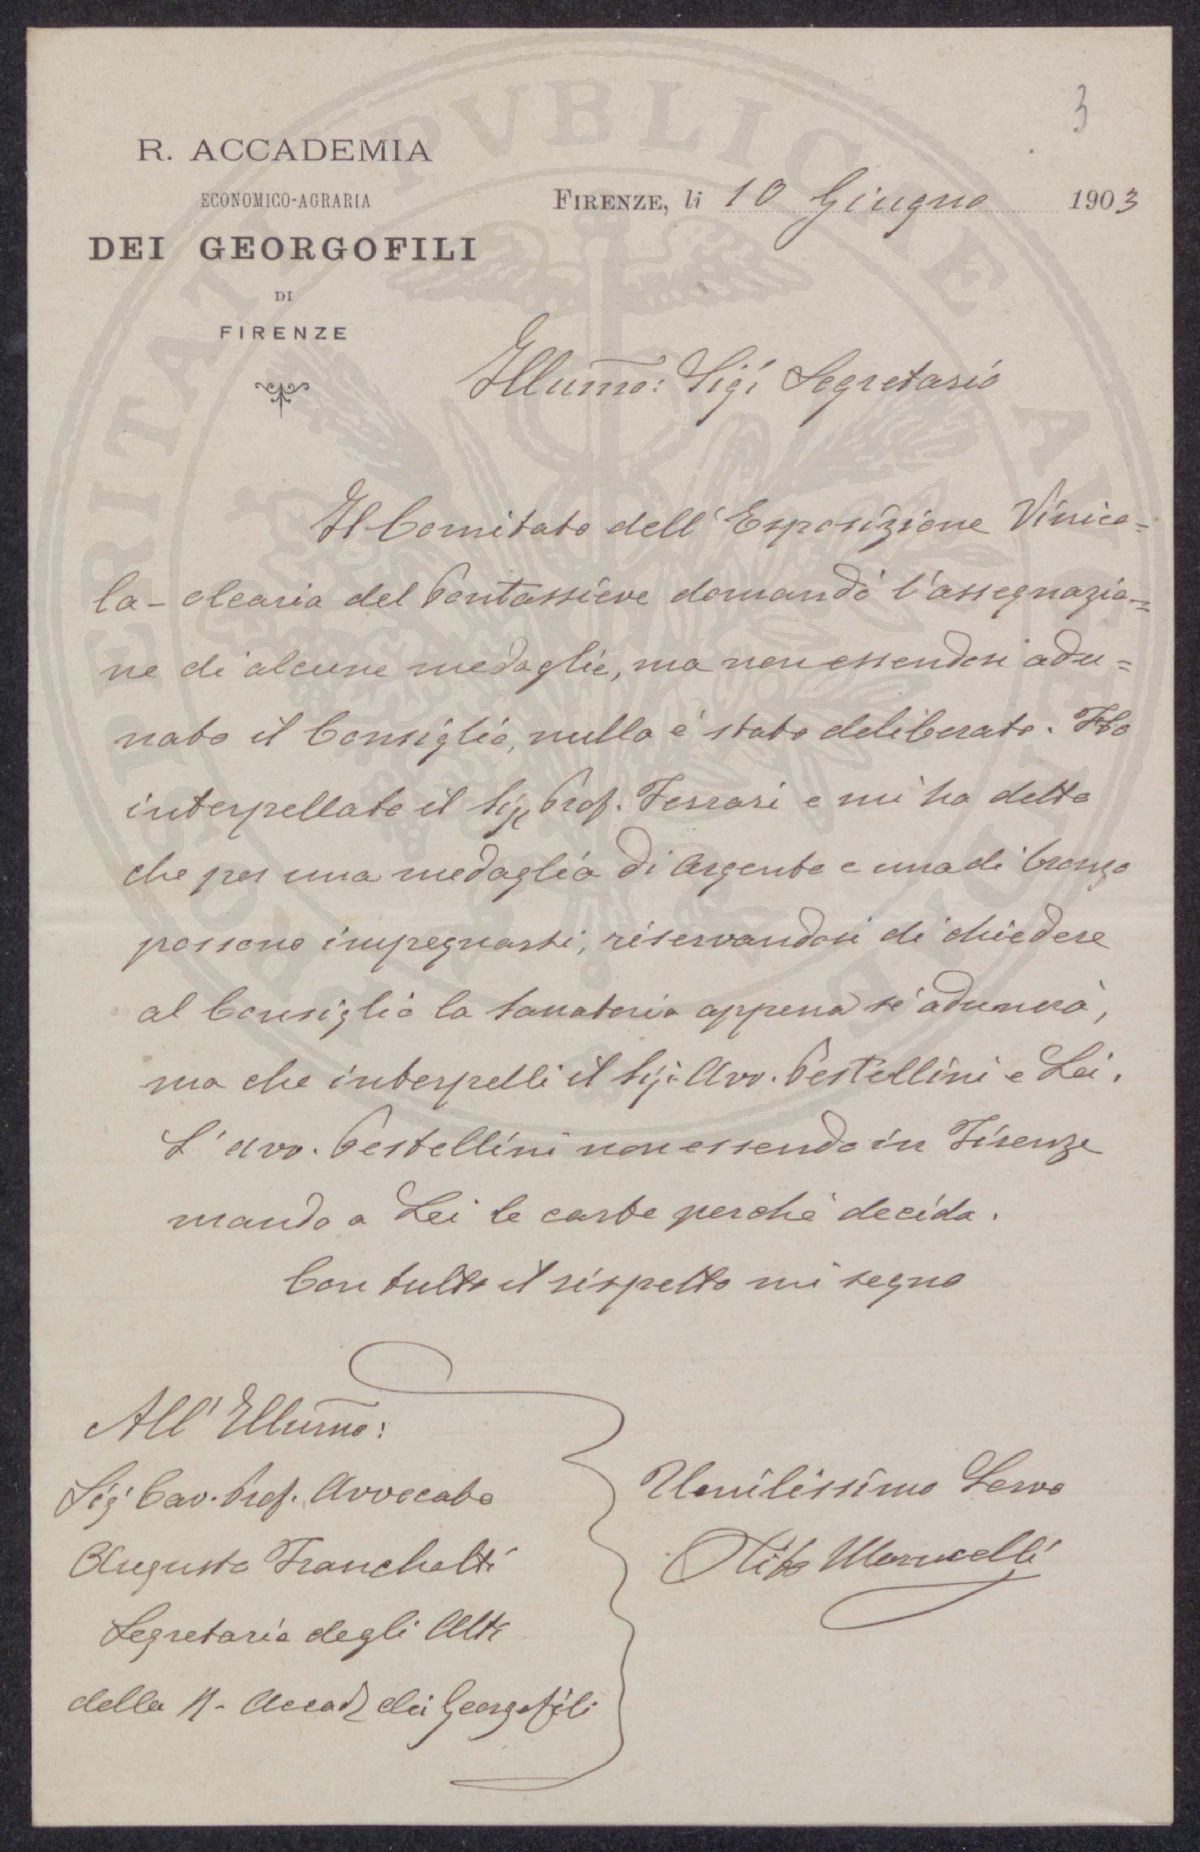 3
R. ACCADEMIA
ECONOMICO-AGRARIA
DEI GEORGOFILI
DI
FIRENZE
FIRENZE, li 10 Giugno 1903
Illumo: Sigr Segretario
Il Comitato dell'Esposizione Vinico=
la-olearia del Pontassieve domandò l'assegnazio=
ne di alcune medaglie, ma non essendosi adu=
nato il Consiglio, nulla è stato deliberato. Ho
interpellato il Sigr Prof. Ferrari e mi ha detto
che per una medaglia di Argento e una di bronzo
possono impegnarsi, riservandosi di chiedere
al Consiglio la sanatoria appena si adunerà,
ma che interpelli il Sigr Avv. Pestellini e Lei.
L'avv. Pestellini non essendo in Firenze
mando a Lei le carte perchè decida.
Con tutto il rispetto mi segno
All'Illumo:
Sigr Cav. Prof. Avvocato
Augusto Franchetti
Segretario degli Atti
della R. Accad dei Georgofili
Umilissimo Servo
Tito Marucelli
PROSPERITATI PVBLICAE AVGENDAE